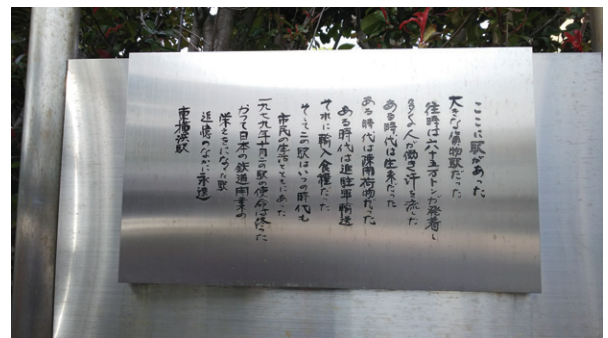 ここに駅があった
大きな貨物駅だった
往時は六十五万トンが発着し
多くの人が働き汗を流した
ある時代は生糸だった
ある時代は陳開荷物だった
ある時代は進駐軍輸送
それに輸入食糧だった
そしてこの駅はいつの時代も
市民の生活とともにあった
一九七九年十月この駅の使命は終った
かつて日本の鉄道開業の
栄えをになった駅
追憶のなかに永遠
東横浜駅